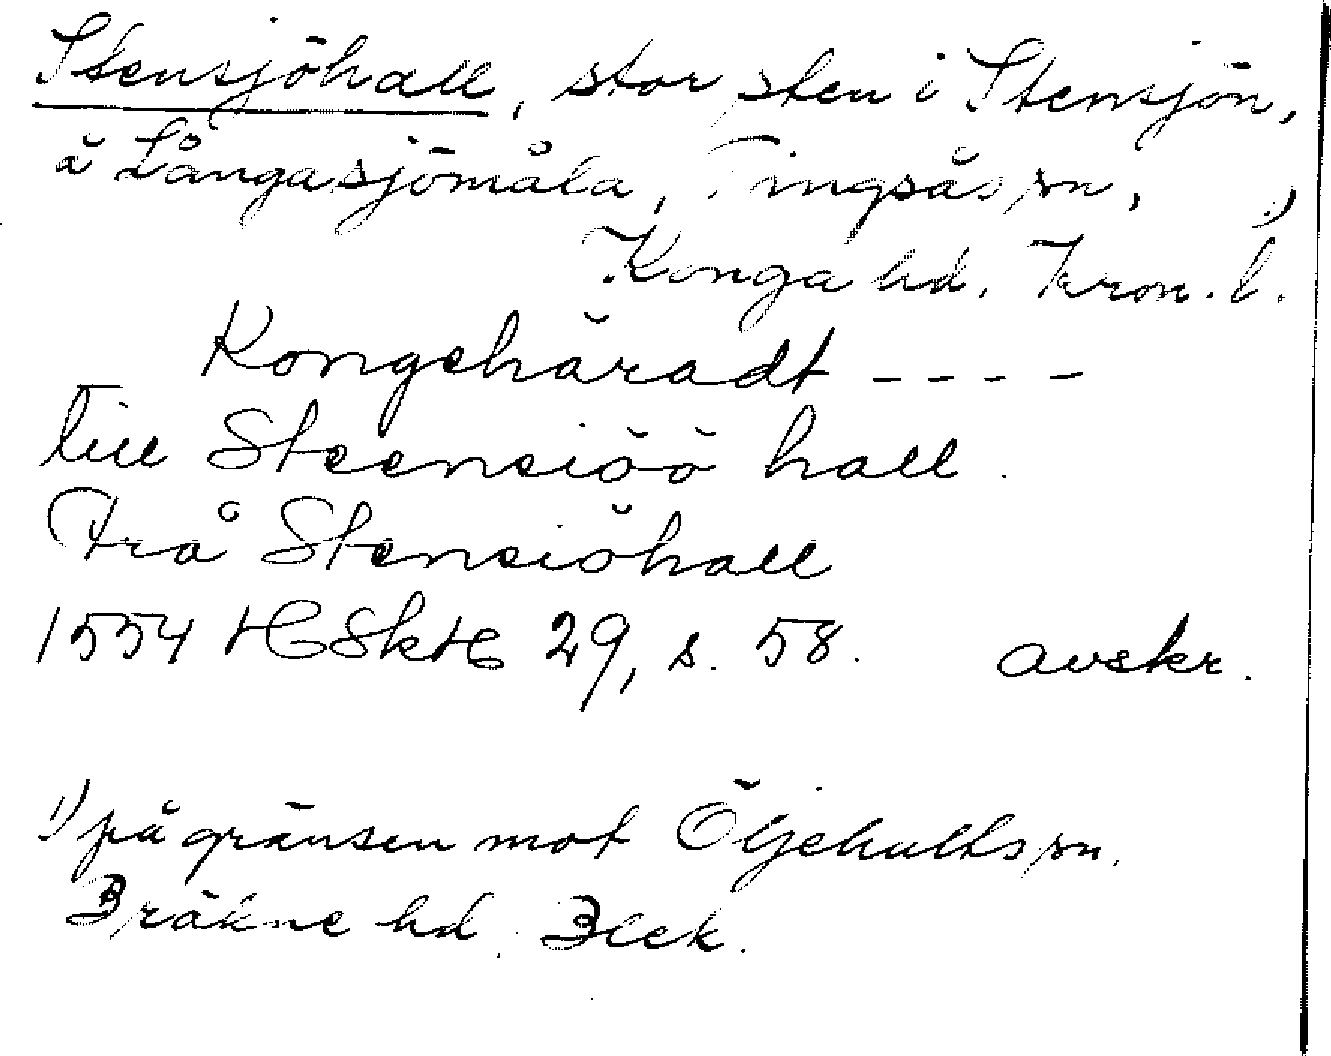 Stensjöhall, stor sten i Stensjön,
å Långasjömåla, Tingsås sn, 1)
Konga hd. Kron. l.
Kongehäradt ----
till Steensiöö hall.
Frå Stensiöhall
1554 HSkH 29, s. 58. avskr.
1) på gränsen mot Öljehults sn,
Bräkne hd. Blek.